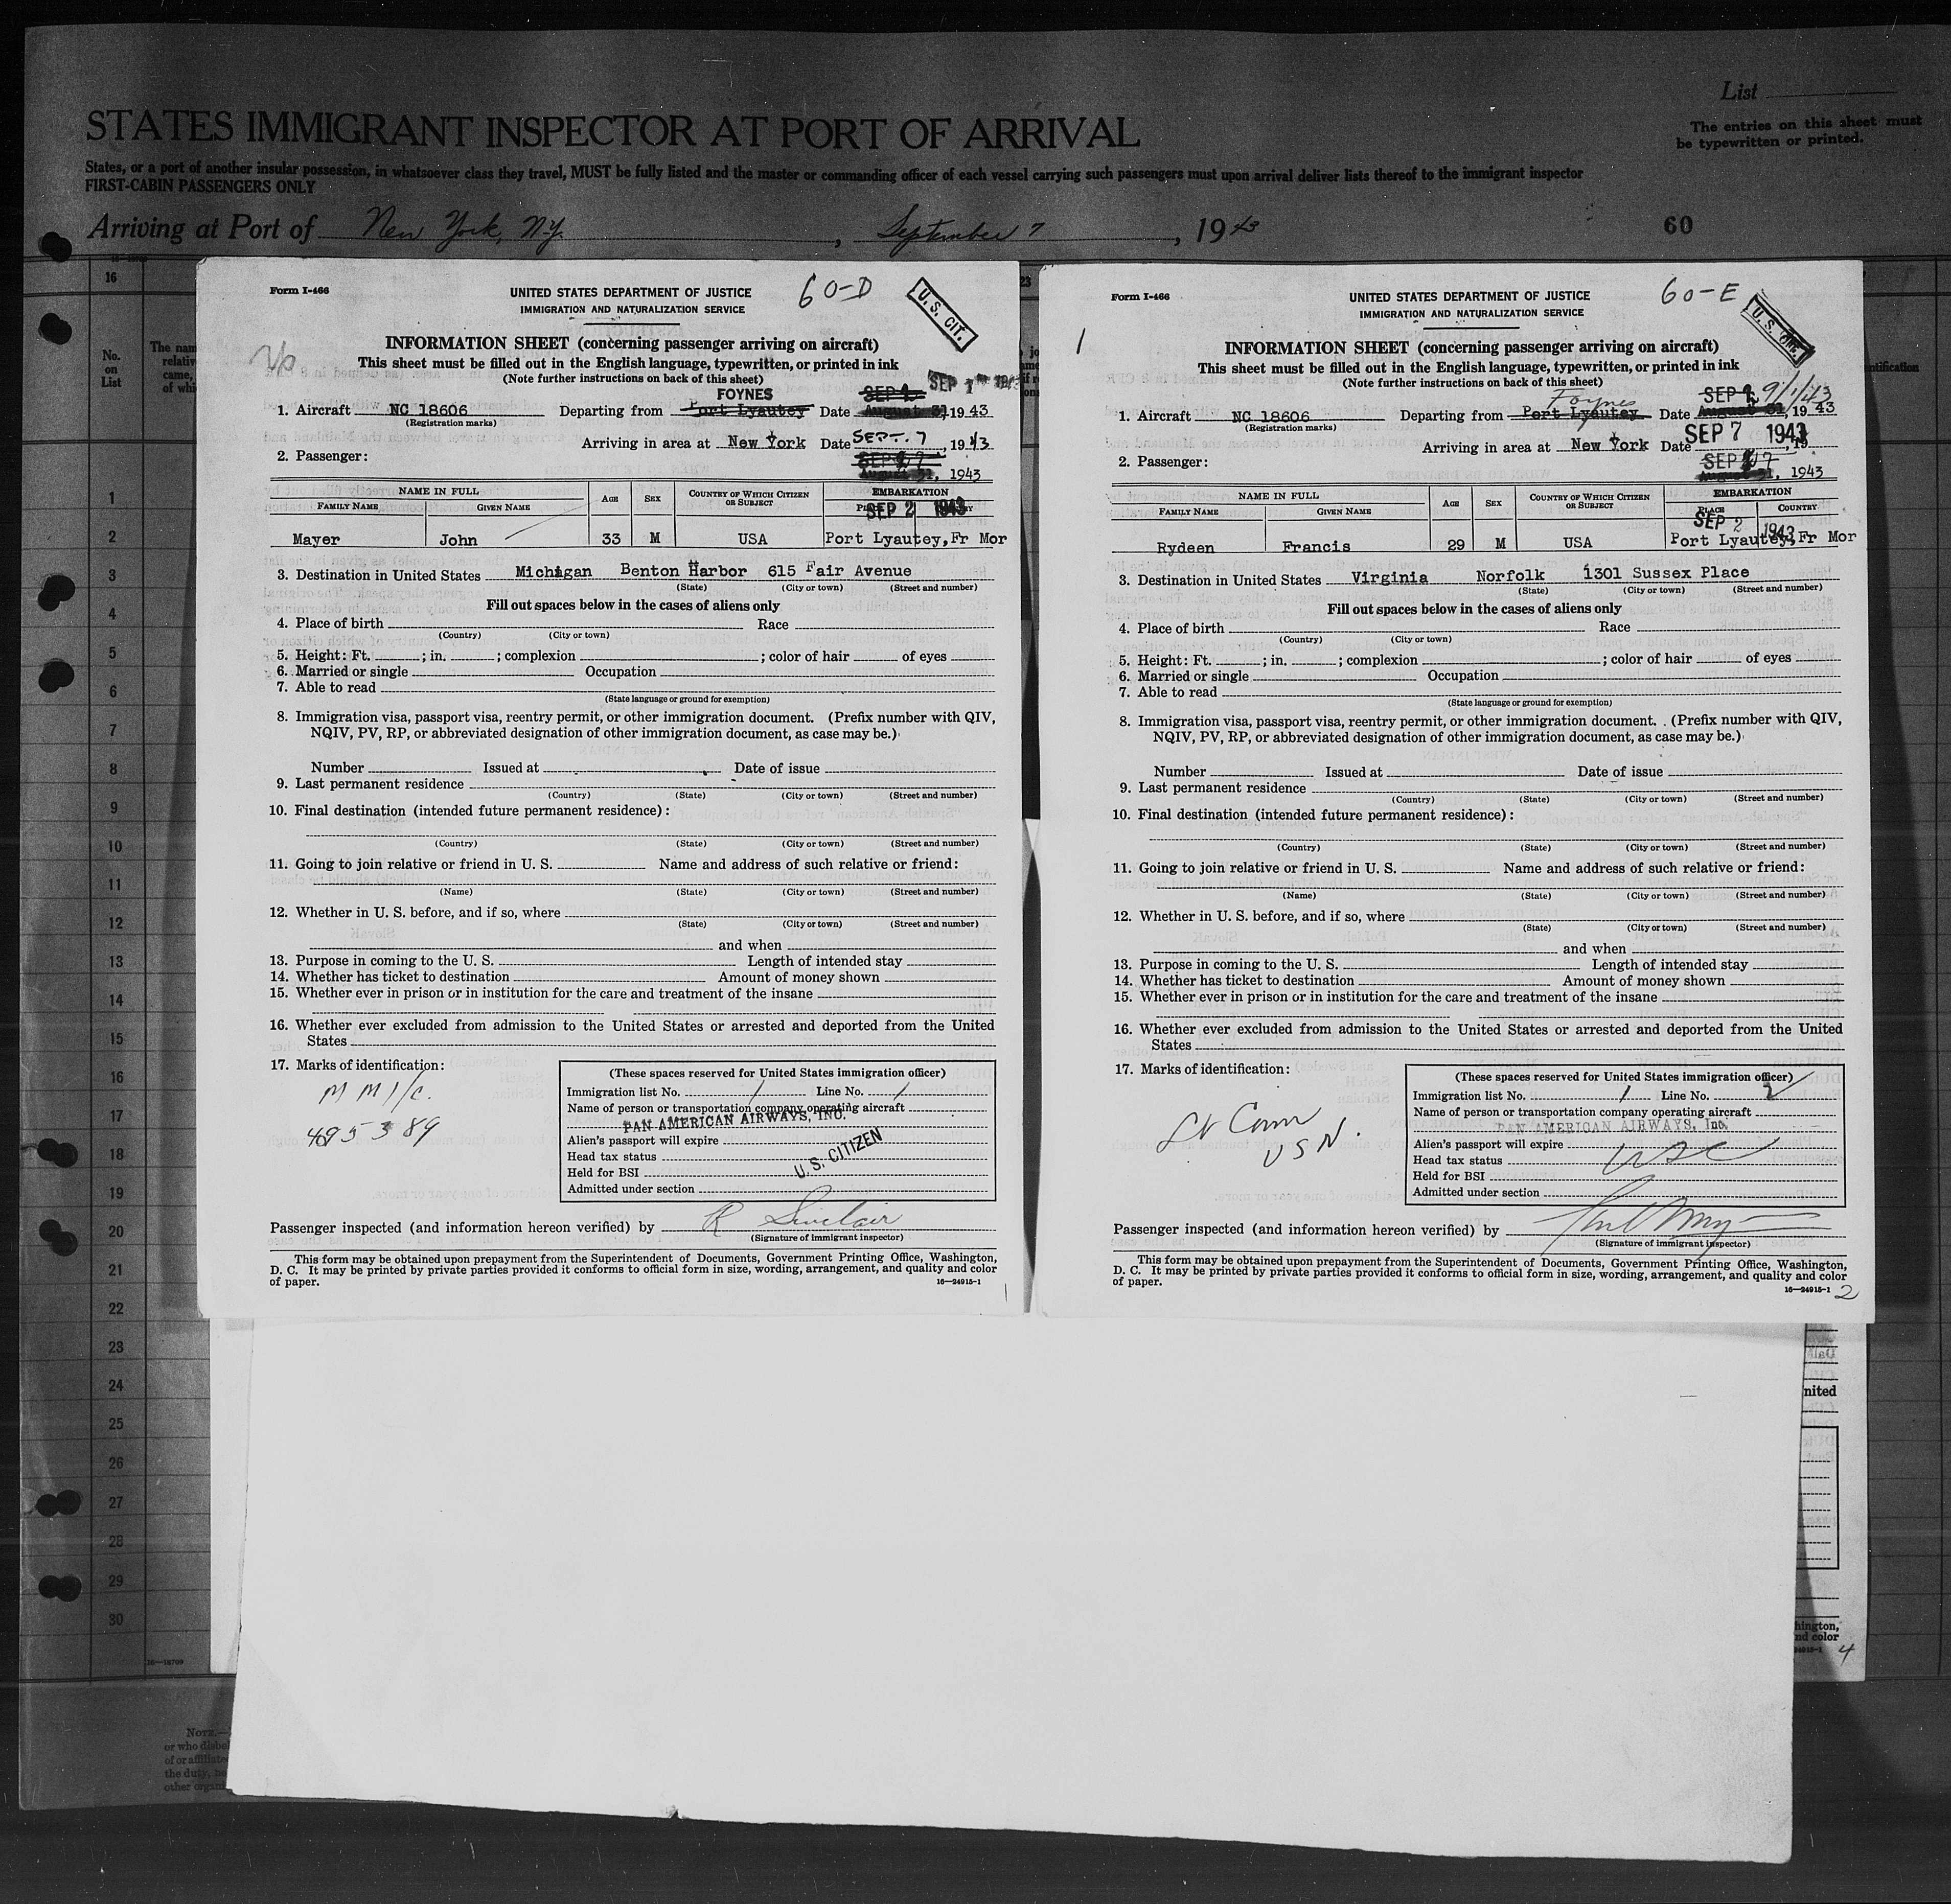 List
STATES IMMIGRANT INSPECTOR AT PORT OF ARRIVAL
The entries on this sheet must
be typewritten or printed.
States, or a port of another insular possession, in whatsoever class they travel, MUST be fully listed and the master or commanding officer of each vessel carrying such passengers must upon arrival deliver lists thereof to the immigrant inspector
FIRST-CABIN PASSENGERS ONLY
Arriving at Port of New York, N.Y. , September 7 , 1943
60
16
No.
on
List
1
2
3
4
5
6
7
8
9
10
11
12
13
14
15
16
17
18
19
20
21
22
23
24
25
26
27
28
29
30
Form I-466
UNITED STATES DEPARTMENT OF JUSTICE
60-D
U. S. CIT.
IMMIGRATION AND NATURALIZATION SERVICE
INFORMATION SHEET (concerning passenger arriving on aircraft)
This sheet must be filled out in the English language, typewritten, or printed in ink
(Note further instructions on back of this sheet)
FOYNES
1. Aircraft NC 18606 Departing from Port Lyautey Date August 31, 1943
(Registration marks)
Arriving in area at New York Date SEPT. 7, 1943
2. Passenger:
August 31, 1943
NAME IN FULL
AGE
SEX
COUNTRY OF WHICH CITIZEN
OR SUBJECT
EMBARKATION
FAMILY NAME
GIVEN NAME
SEP 2 1943
Mayer John 33 M USA Port Lyautey, Fr Mor
3. Destination in United States Michigan Benton Harbor 615 Fair Avenue
(State) (City or town) (Street and number)
Fill out spaces below in the cases of aliens only
4. Place of birth Race
(Country) (City or town)
5. Height: Ft. ; in. ; complexion ; color of hair of eyes
6. Married or single Occupation
7. Able to read
(State language or ground for exemption)
8. Immigration visa, passport visa, reentry permit, or other immigration document. (Prefix number with QIV,
NQIV, PV, RP, or abbreviated designation of other immigration document, as case may be.)
Number Issued at Date of issue
9. Last permanent residence
(Country) (State) (City or town) (Street and number)
10. Final destination (intended future permanent residence):
(Country) (State) (City or town) (Street and number)
11. Going to join relative or friend in U. S. Name and address of such relative or friend:
(Name) (State) (City or town) (Street and number)
12. Whether in U. S. before, and if so, where
(State) (City or town) (Street and number)
and when
13. Purpose in coming to the U. S. Length of intended stay
14. Whether has ticket to destination Amount of money shown
15. Whether ever in prison or in institution for the care and treatment of the insane
16. Whether ever excluded from admission to the United States or arrested and deported from the United
States
17. Marks of identification:
M M 1/c.
495 3 89
(These spaces reserved for United States immigration officer)
Immigration list No. 1 Line No. 1
Name of person or transportation company operating aircraft
PAN AMERICAN AIRWAYS, INC.
Alien's passport will expire
Head tax status
U. S. CITIZEN
Held for BSI
Admitted under section
Passenger inspected (and information hereon verified) by R Sinclair
(Signature of immigrant inspector)
This form may be obtained upon prepayment from the Superintendent of Documents, Government Printing Office, Washington,
D. C. It may be printed by private parties provided it conforms to official form in size, wording, arrangement, and quality and color
of paper.
16—24915-1
1
Form I-466
UNITED STATES DEPARTMENT OF JUSTICE
60-E
IMMIGRATION AND NATURALIZATION SERVICE
1
INFORMATION SHEET (concerning passenger arriving on aircraft)
This sheet must be filled out in the English language, typewritten, or printed in ink
(Note further instructions on back of this sheet)
9/1/43
Foynes
1. Aircraft NC 18606 Departing from Port Lyautey Date August 31, 1943
(Registration marks)
Arriving in area at New York Date SEP 7 1943
2. Passenger:
August 31, 1943
NAME IN FULL
AGE
SEX
COUNTRY OF WHICH CITIZEN
OR SUBJECT
EMBARKATION
FAMILY NAME
GIVEN NAME
PLACE
COUNTRY
SEP 2 1943
Rydeen Francis 29 M USA Port Lyautey, Fr Mor
3. Destination in United States Virginia Norfolk 1301 Sussex Place
(State) (City or town) (Street and number)
Fill out spaces below in the cases of aliens only
4. Place of birth Race
(Country) (City or town)
5. Height: Ft. ; in. ; complexion ; color of hair of eyes
6. Married or single Occupation
7. Able to read
(State language or ground for exemption)
8. Immigration visa, passport visa, reentry permit, or other immigration document. (Prefix number with QIV,
NQIV, PV, RP, or abbreviated designation of other immigration document, as case may be.)
Number Issued at Date of issue
9. Last permanent residence
(Country) (State) (City or town) (Street and number)
10. Final destination (intended future permanent residence):
(Country) (State) (City or town) (Street and number)
11. Going to join relative or friend in U. S. Name and address of such relative or friend:
(Name) (State) (City or town) (Street and number)
12. Whether in U. S. before, and if so, where
(State) (City or town) (Street and number)
and when
13. Purpose in coming to the U. S. Length of intended stay
14. Whether has ticket to destination Amount of money shown
15. Whether ever in prison or in institution for the care and treatment of the insane
16. Whether ever excluded from admission to the United States or arrested and deported from the United
States
17. Marks of identification:
Lt Comm
USN.
(These spaces reserved for United States immigration officer)
Immigration list No. 1 Line No. 2
Name of person or transportation company operating aircraft
PAN AMERICAN AIRWAYS, Inc.
Alien's passport will expire
Head tax status USC
Held for BSI
Admitted under section
Passenger inspected (and information hereon verified) by
(Signature of immigrant inspector)
This form may be obtained upon prepayment from the Superintendent of Documents, Government Printing Office, Washington,
D. C. It may be printed by private parties provided it conforms to official form in size, wording, arrangement, and quality and color
of paper.
16—24915-1
2
nited
hington,
nd color
4
16—18709
NOTE.—
or who disbel
of or affiliate
the duty, ne
other organi